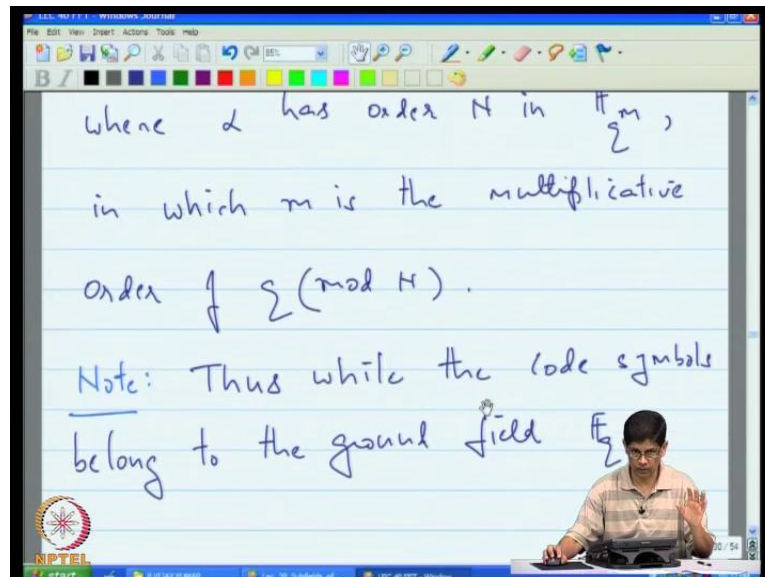 LEC 40 FFT - Windows Journal
File Edit View Insert Actions Tools Help
85%
B I
where α has order N in F_q^m ,
in which m is the multiplicative
order of q (mod N).
Note: Thus while the code symbols
belong to the ground field F_q
30/54
NPTEL
start
LEC 40 FFT - Windows